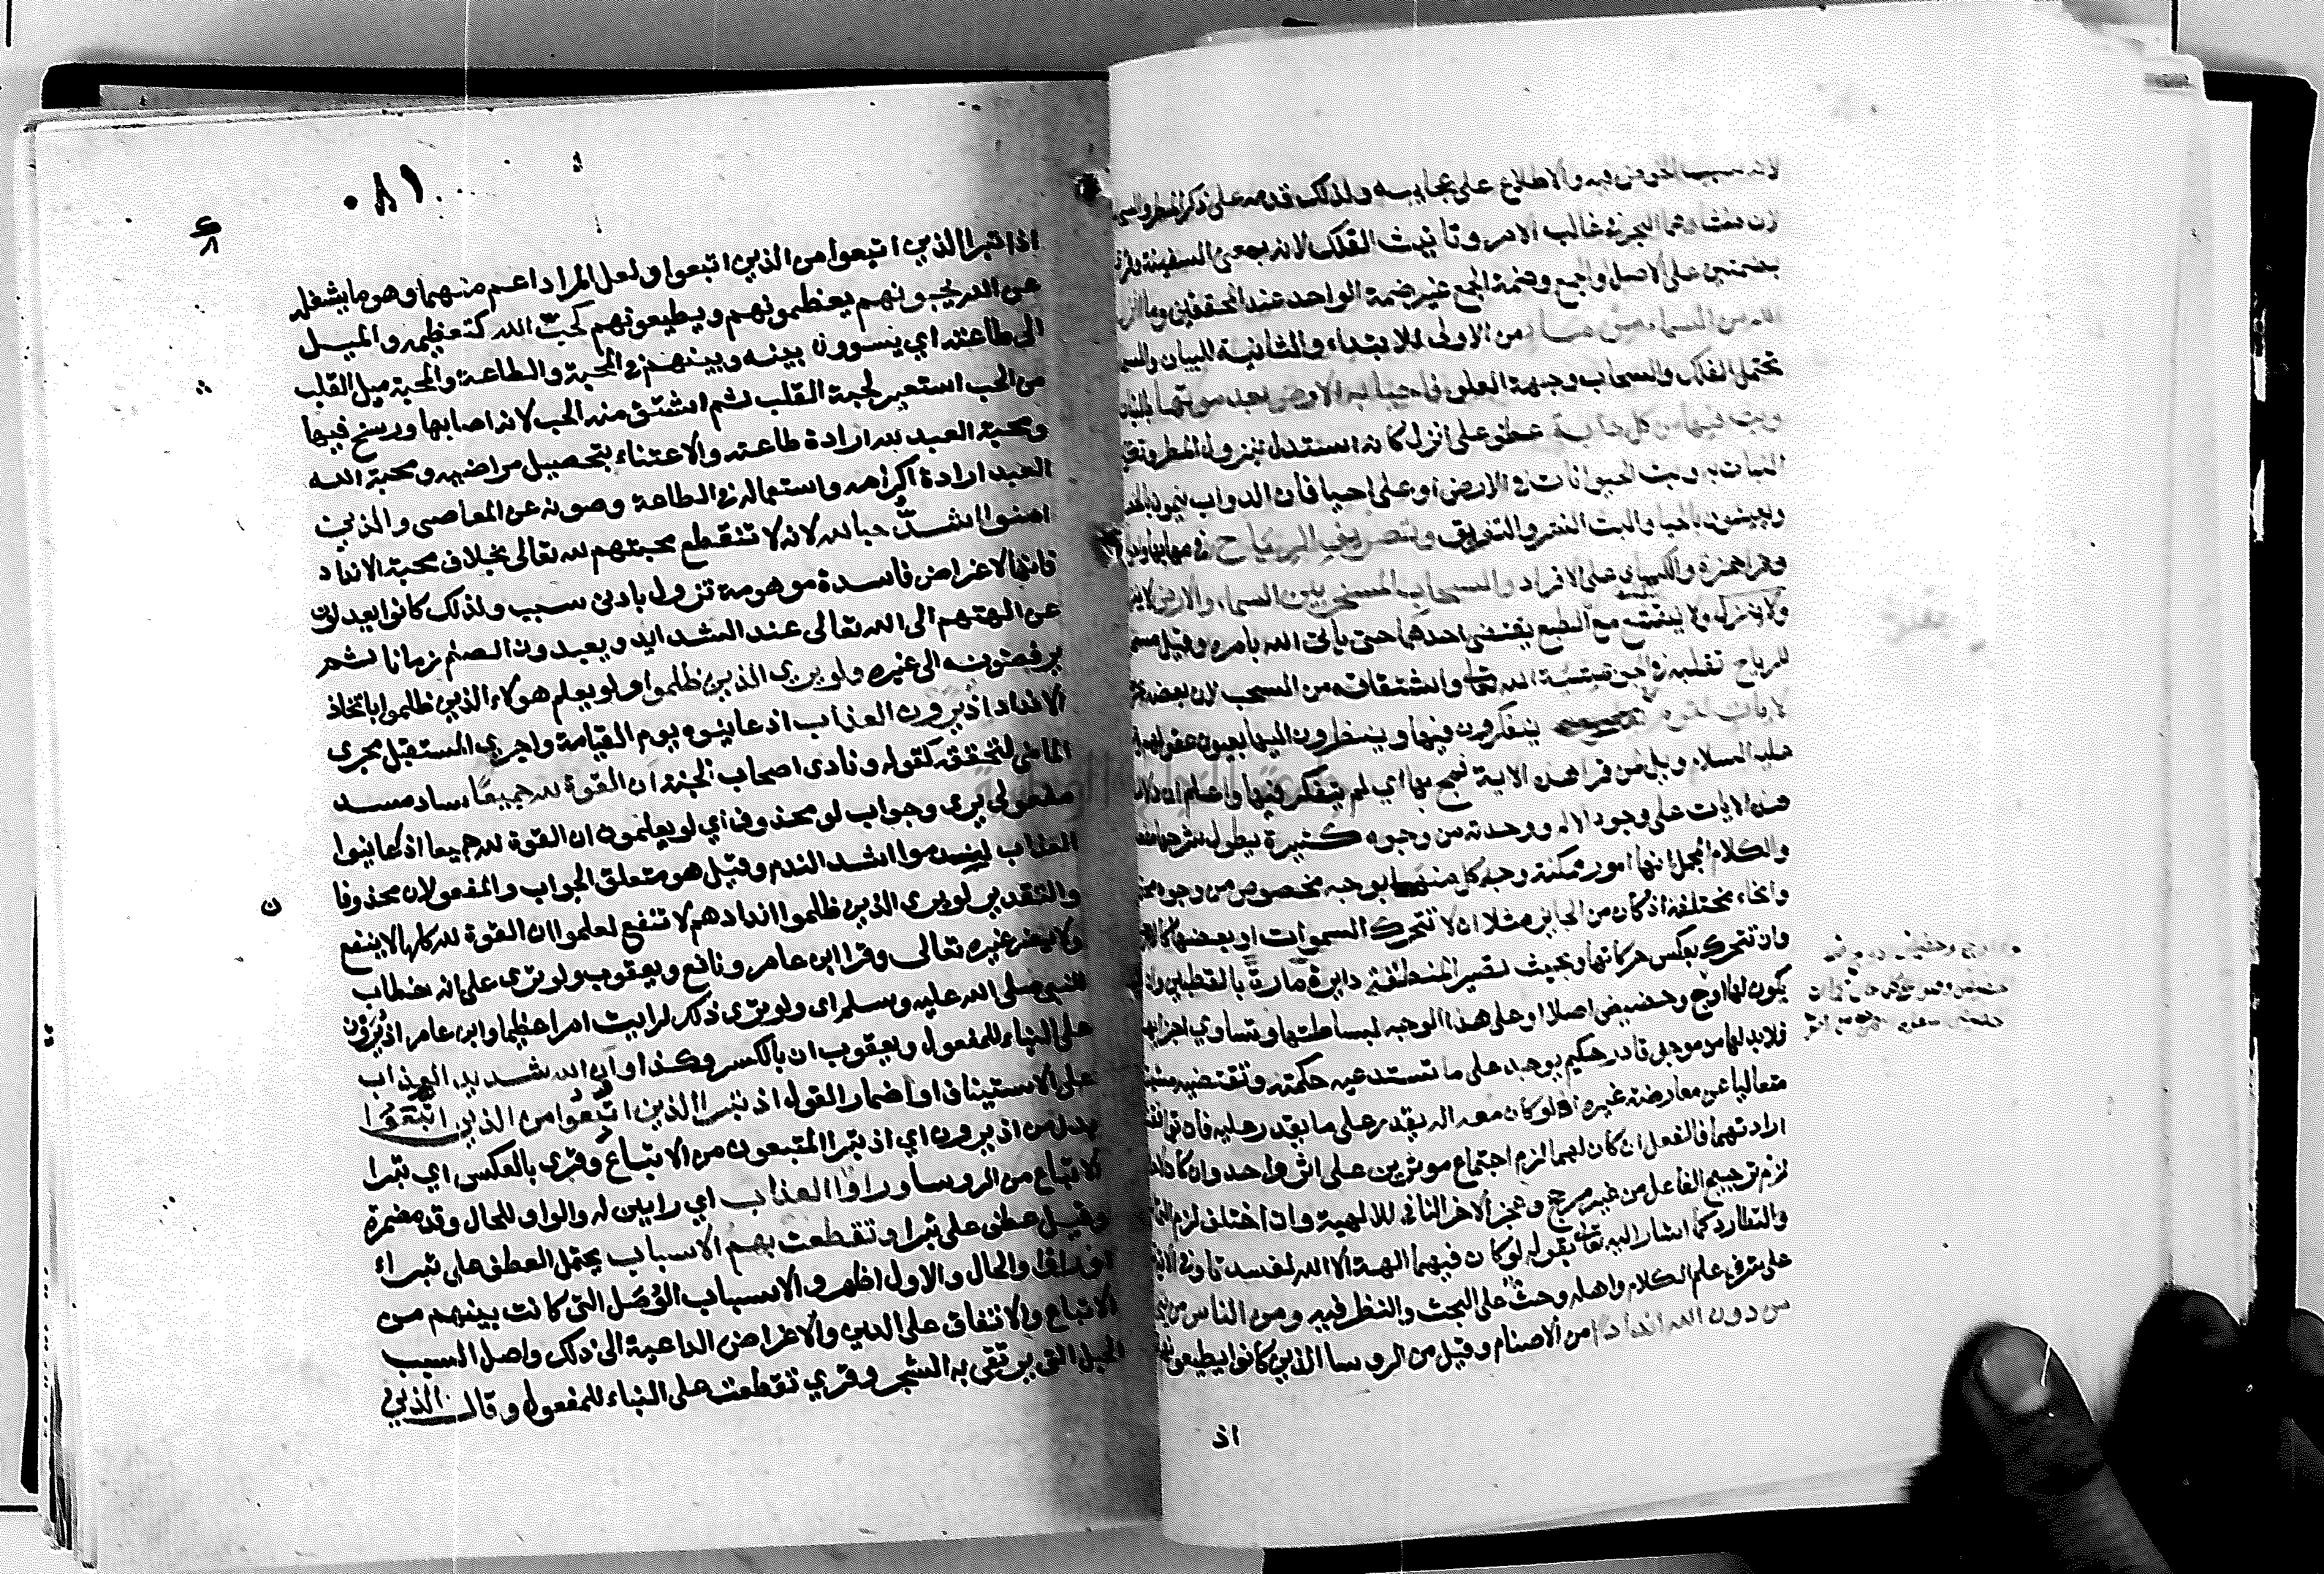 لانه سبب الخوض فيه والاطلاع على عجايبه ولذلك قدمه على ذكر المطر والسحاب
لان منشاءهما البحر في غالب الامر وتانيث الفلك لانه بمعنى السفينة وقرئ
بضمتين على الاصل او الجمع وضمة الجمع غير ضمة الواحد عند المحققين وما انزل
الله من السماء من ماء من الاولى للابتداء والثانية للبيان والسماء
تحتمل الفلك والسحاب وجهة العلو فاحيا به الارض بعد موتها بالنبات
وبث فيها من كل دابة عطف على انزل كانه استدل بنزول المطر وتكون
النبات به وبث الحيوانات في الارض او على احيا فان الدواب ينمون بالخصب
ويعيشون بالحيا والبث النشر والتفريق وتصريف الرياح في مهابها
وقرا حمزة والكسائى على الافراد والسحاب المسخر بين السماء والارض لا ينزل
ولا ينقشع مع ان الطبع يقتضى احدهما حتى ياتى الله بامره وقيل مسخر
للرياح تقلبه في الجو بمشيئة الله تعالى واشتقاقه من السحب لان بعضه يجر
لايات لقوم يعقلون يتفكرون فيها وينظرون اليها بعيون عقولهم
عليه السلام ويل لمن قرا هذه الاية فمج بها اي لم يتفكر فيها واعلم ان دلالة
هذه الايات على وجود الاله ووحدته من وجوه كثيرة يطول شرحها
والكلام المجمل انها امور ممكنة وجد كل منها بوجه مخصوص من وجوه
وانحاء مختلفة اذ كان من الجايز مثلا ان لا تتحرك السموات او بعضها كالارض
وان تتحرك بعكس حركاتها وبحيث تصير المنطقة دايرة مارة بالقطبين وان لا
يكون لها اوج وحضيض اصلا او على هذا الوجه لبساطتها وتساوي اجزائها
فلا بد لها من موجد قادر حكيم يوجد على ما تستدعيه حكمته وتقتضيه مشيئته
متعاليا عن معارضة غيره اذ لو كان معه اله يقدر على ما يقدر عليه فان توافقت
ارادتهما فالفعل ان كان لهما لزم اجتماع موثرين على اثر واحد وان كان لاحدهما
لزم ترجيح الفاعل من غير مرجح وعجز الاخر المنافي للالهية وان اختلف لزم التمانع
والتطارد كما اشار اليه تعالى بقوله لو كان فيهما الهة الا الله لفسدتا وفي الاية
على شرف علم الكلام واهله وحث على البحث والنظر فيه ومن الناس من يتخذ
من دون الله اندادا من الاصنام وقيل من الروسا الذين كانوا يطيعونهم
اذ
٠٨١
اذ تبرا الذين اتبعوا من الذين اتبعوا ولعل المراد اعم منهما وهو ما يشغله
عن الله يحبونهم يعظمونهم ويطيعونهم كحب الله كتعظيمه والميل
الى طاعته اي يسوون بينه وبينهم في المحبة والطاعة والمحبة ميل القلب
من الحب استعير لحبة القلب ثم اشتق منه الحب لانه اصابها ورسخ فيها
ومحبة العبد لله ارادة طاعته والاعتناء بتحصيل مراضيه ومحبة الله
العبد ارادة اكرامه واستعماله في الطاعة وصونه عن المعاصى والذين
امنوا اشد حبا لله لانه لا تنقطع محبتهم لله تعالى بخلاف محبة الانداد
فانها لاغراض فاسدة موهومة تزول بادنى سبب ولذلك كانوا يعدلون
عن الهتهم الى الله تعالى عند الشدايد ويعبدون الصنم زمانا ثم
يرفضونه الى غيره ولو يرى الذين ظلموا ولو يعلم هولاء الذين ظلموا باتخاذ
الانداد اذ يرون العذاب اذ عاينوه يوم القيامة واجري المستقبل مجرى
الماضى لتحققه كقوله ونادى اصحاب الجنة ان القوة لله جميعا ساد مسد
مفعولى يرى وجواب لو محذوف اي لو يعلمون ان القوة لله جميعا اذ عاينوا
العذاب لندموا اشد الندم وقيل هو متعلق الجواب والمفعولان محذوفان
والتقدير لو يرى الذين ظلموا اندادهم لا تنفع لعلموا ان القوة لله كلها لا ينفع
ولا يضر غيره تعالى وقرا ابن عامر ونافع ويعقوب ولو ترى على انه خطاب
للنبى صلى الله عليه وسلم اى ولو ترى ذلك لرايت امرا عظيما وابن عامر اذ يرون
على البناء للمفعول ويعقوب ان بالكسر وكذا وان الله شديد العذاب
على الاستيناف او اضمار القول اذ تبرا الذين اتبعوا من الذين اتبعوا
بدل من اذ يرون اي اذ تبرا المتبعون من الاتباع وقرى بالعكس اي تبرا
الاتباع من الروسا وراوا العذاب اي رايين له والواو للحال وقد مضمرة
وقيل عطف على تبرا وتقطعت بهم الاسباب يحتمل العطف على تبراء
او راوا والحال والاول اظهر والاسباب الوصل التى كانت بينهم من
الاتباع والاتفاق على الدين والاغراض الداعية الى ذلك واصل السبب
الحبل الذى يرتقى به الشجر وقري تقطعت على البناء للمفعول وقال الذين